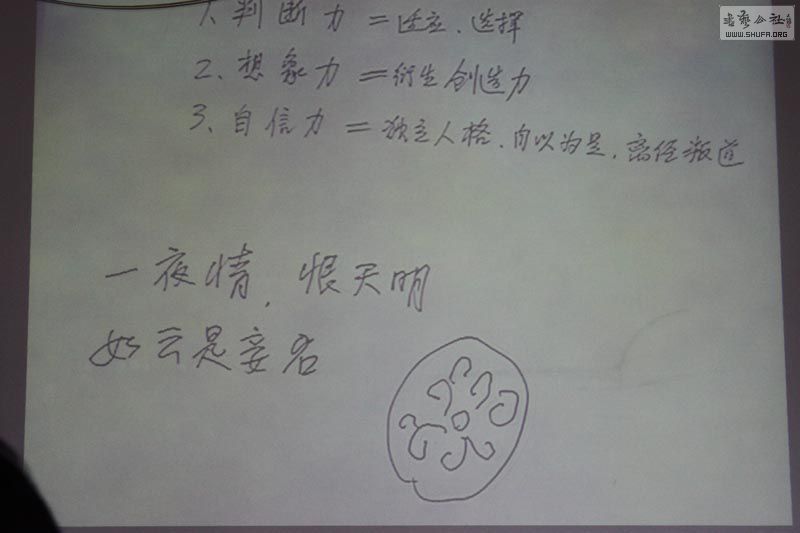 1、判断力=适应、选择
2、想象力=衍生创造力
3、自信力=独立人格、自以为是、离经叛道
一夜情,恨天明
如云是妾名
书艺公社
WWW.SHUFA.ORG